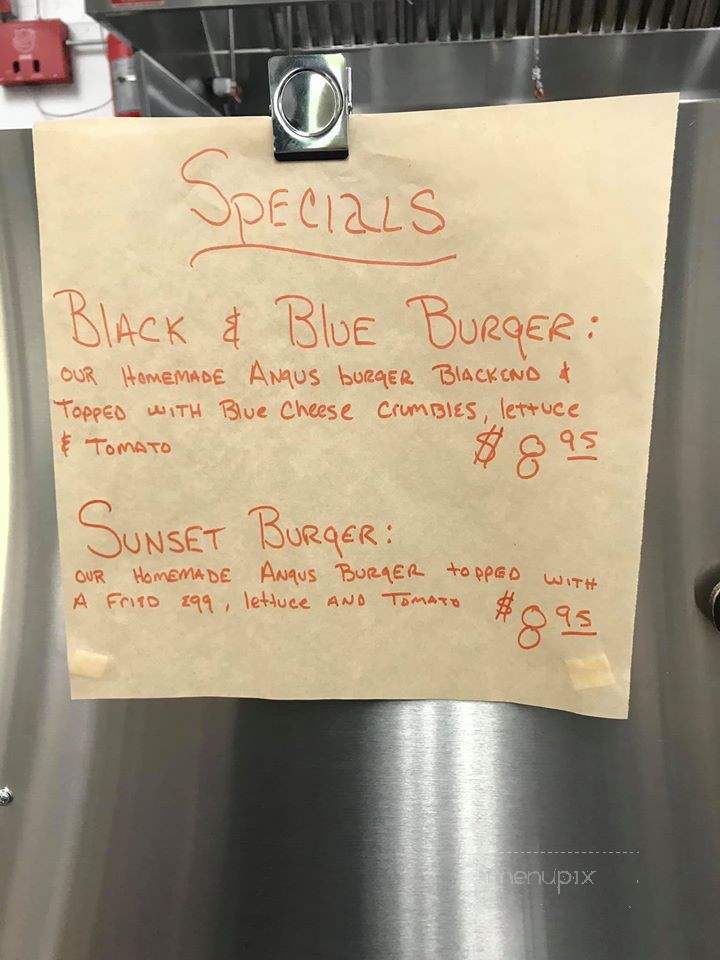 SPECIALS
BLACK & BLUE BURGER:
OUR HOMEMADE ANGUS BURGER BLACKEND &
TOPPED WITH Blue Cheese CRUMBLES, lettuce
& TOMATO $8.95
SUNSET BURGER:
OUR HOMEMADE ANGUS BURGER TOPPED WITH
A FRIED egg, lettuce AND TOMATO $8.95
menupix